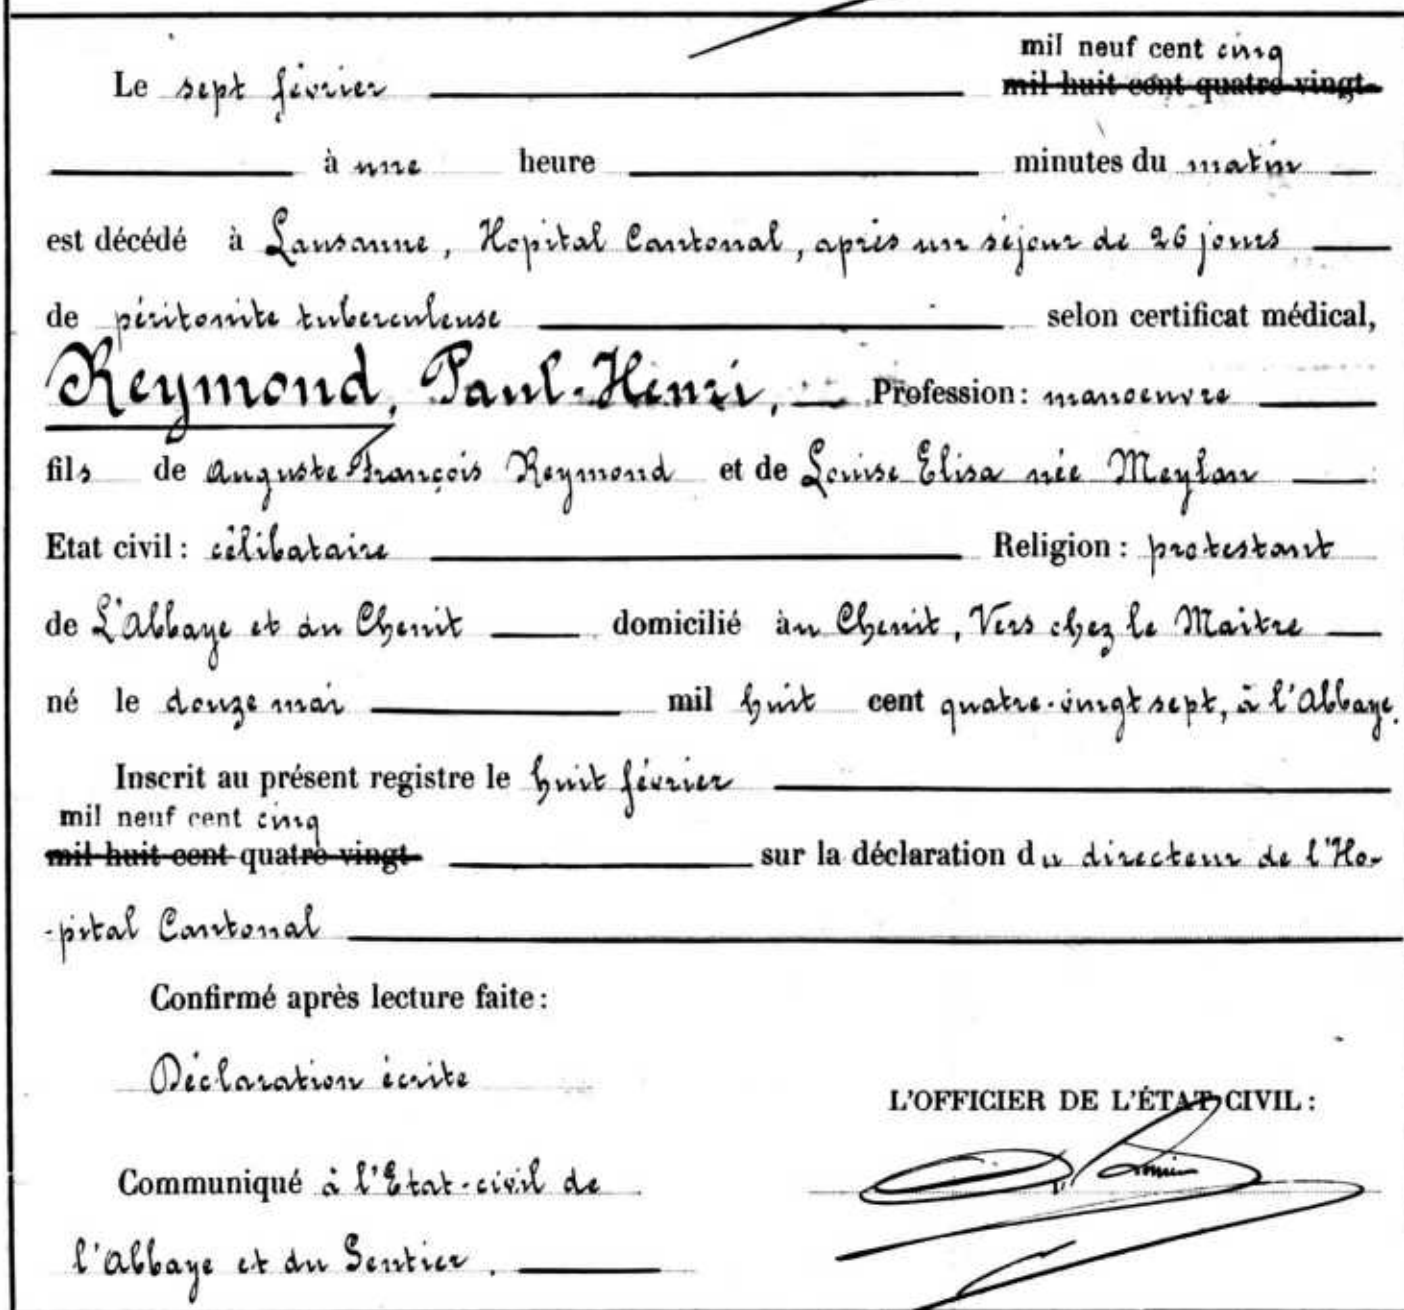 mil neuf cent cinq
Le sept février mil huit cent quatre vingt-
à une heure minutes du matin
est décédé à Lausanne, Hopital Cantonal, après un séjour de 26 jours
de péritonite tuberculeuse selon certificat médical,
Reymond, Paul-Henri, Profession: manoeuvre
fils de Auguste François Reymond et de Louise Elisa née Meylan
Etat civil: célibataire Religion: protestant
de L'Abbaye et du Chenit domicilié au Chenit, Vers chez le Maitre
né le douze mai mil huit cent quatre-vingt sept, à l'Abbaye.
Inscrit au présent registre le huit février
mil neuf cent cinq
mil huit cent quatre vingt- sur la déclaration du directeur de l'Ho-
-pital Cantonal
Confirmé après lecture faite:
Déclaration écrite
L'OFFICIER DE L'ÉTAT CIVIL:
Communiqué à l'Etat-civil de
l'Abbaye et du Sentier.